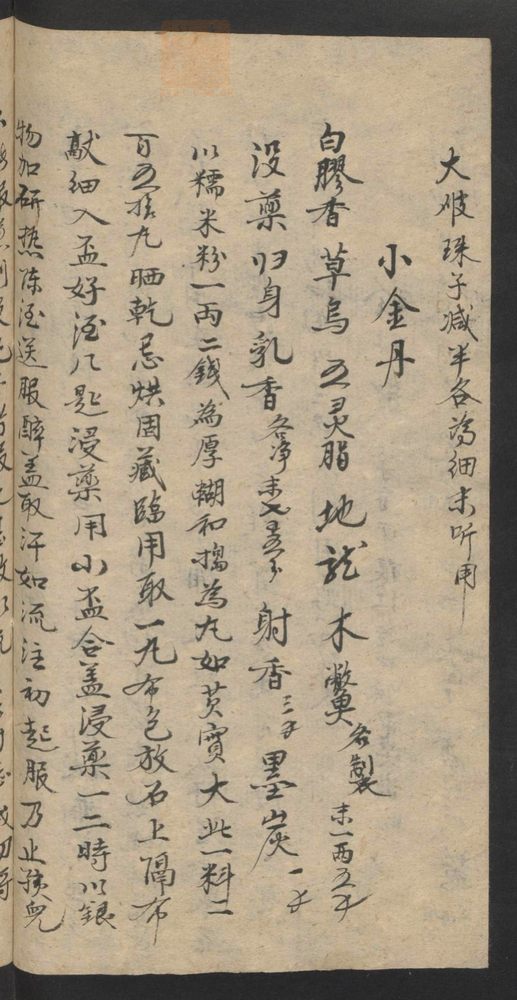 大眼珠子减半各为细末听用
小金丹
白膠香草烏五灵脂地龙木鱉各製末一两五才
没藥归身乳香各净末七才五分射香三才墨炭一才
以糯米粉一两二錢為厚糊和搗為丸如芡實大此一料二
百五拾丸晒乾忌烘固藏臨用取一丸布包放石上隔布
敲细入盃好酒几匙浸藥用小盃合盖浸藥一二時以銀
物加研热陈酒送服醉盖取汗如流注初起服乃止孩兒